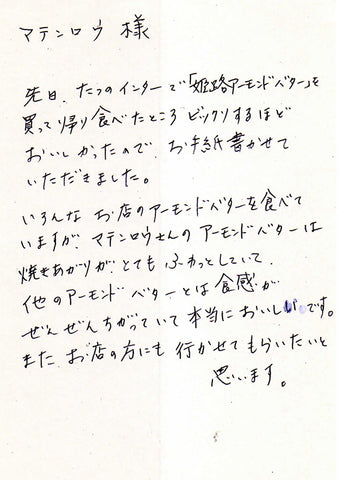 マテンロウ 様
先日、たつのインターで「姫路アーモンドバター」を
買って帰り食べたところ ビックリするほど
おいしかったので、お手紙書かせて
いただきました。
いろんな お店のアーモンドバターを食べて
いますが、マテンロウさんの アーモンドバターは
焼きあがりが、とても ふわっとしていて、
他のアーモンド バターとは 食感が
ぜんぜんちがっていて 本当においしいです。
また お店の方にも 行かせて もらいたいと
思います。